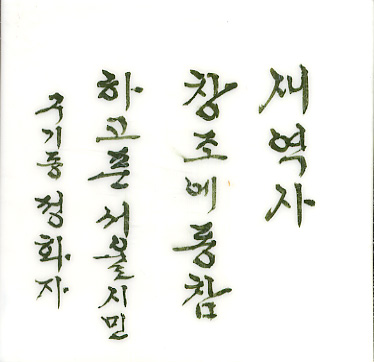 재역자
창조에동참
하고픈 서울시민
구기동 정화자